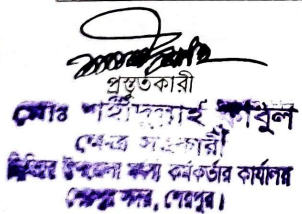 প্রস্তুতকারী
মোঃ শহীদুল্লাহ কাবুল
ক্ষেত্র সহকারী
সিনিয়র উপজেলা মৎস্য কর্মকর্তার কার্যালয়
শেরপুর সদর, শেরপুর।